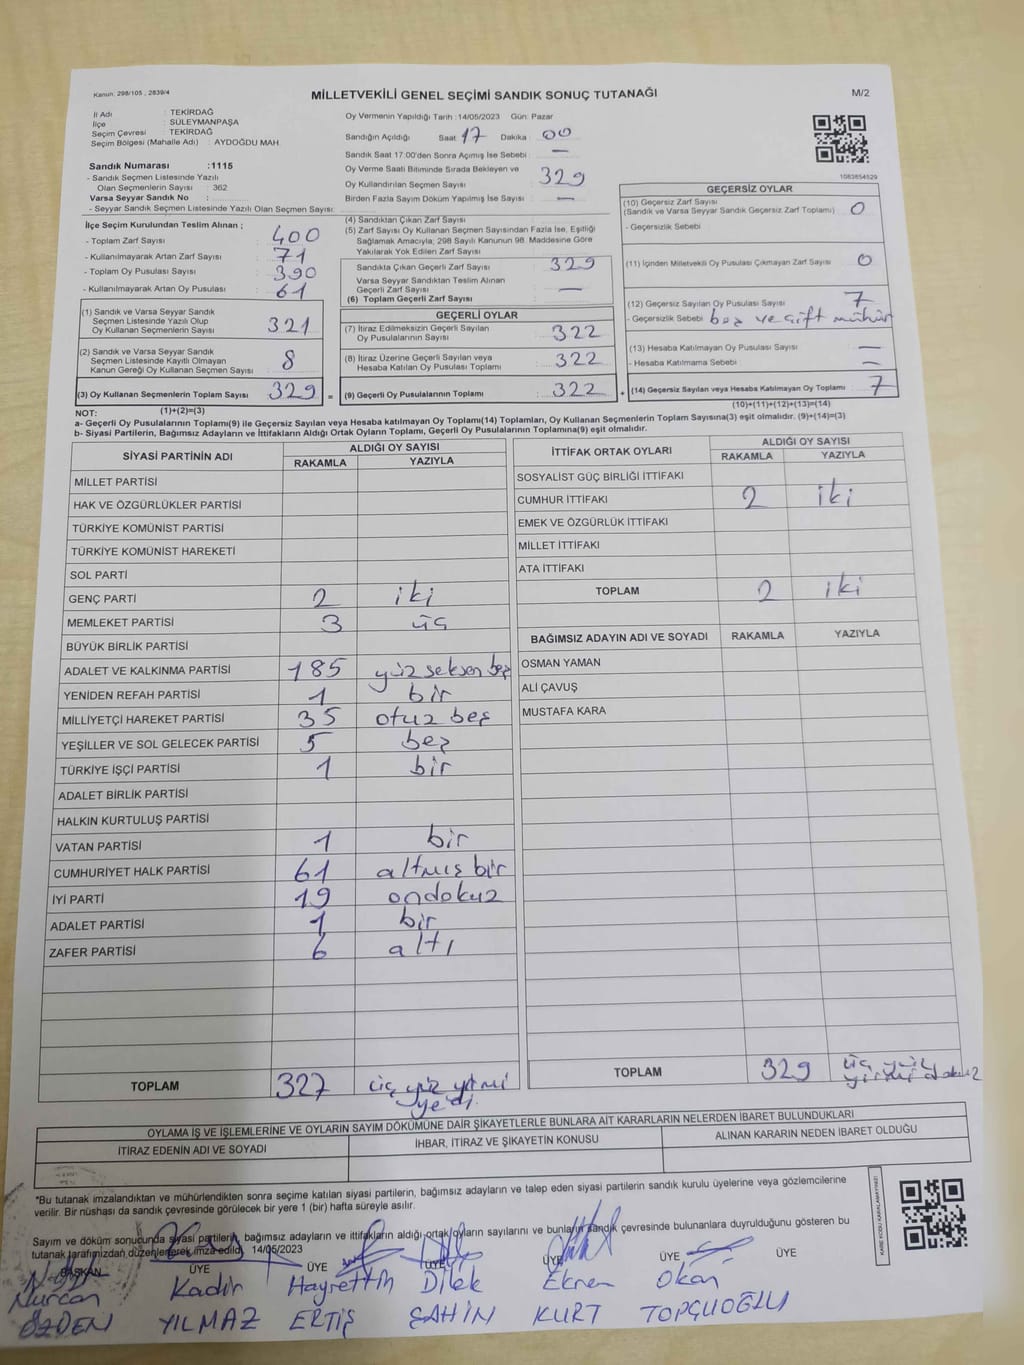 Kanun: 298/105 , 2839/4
MİLLETVEKİLİ GENEL SEÇİMİ SANDIK SONUÇ TUTANAĞI
M/2
İl Adı : TEKİRDAĞ
İlçe : SÜLEYMANPAŞA
Seçim Çevresi : TEKİRDAĞ
Seçim Bölgesi (Mahalle Adı) : AYDOĞDU MAH.
Sandık Numarası :1115
- Sandık Seçmen Listesinde Yazılı
Olan Seçmenlerin Sayısı : 362
Varsa Seyyar Sandık No :
- Seyyar Sandık Seçmen Listesinde Yazılı Olan Seçmen Sayısı:
Oy Vermenin Yapıldığı Tarih :14/05/2023 Gün: Pazar
Sandığın Açıldığı Saat 17 Dakika : 00
Sandık Saat 17:00'den Sonra Açımış İse Sebebi : —
Oy Verme Saati Bitiminde Sırada Bekleyen ve
Oy Kullandırılan Seçmen Sayısı : 329
Birden Fazla Sayım Döküm Yapılmış İse Sayısı : —
1083854529
İlçe Seçim Kurulundan Teslim Alınan ;
- Toplam Zarf Sayısı : 400
- Kullanılmayarak Artan Zarf Sayısı : 71
- Toplam Oy Pusulası Sayısı : 390
- Kullanılmayarak Artan Oy Pusulası : 61
(1) Sandık ve Varsa Seyyar Sandık
Seçmen Listesinde Yazılı Olup
Oy Kullanan Seçmenlerin Sayısı : 321
(2) Sandık ve Varsa Seyyar Sandık
Seçmen Listesinde Kayıtlı Olmayan
Kanun Gereği Oy Kullanan Seçmen Sayısı : 8
(3) Oy Kullanan Seçmenlerin Toplam Sayısı 329 =
(1)+(2)=(3)
(4) Sandıktan Çıkan Zarf Sayısı
(5) Zarf Sayısı Oy Kullanan Seçmen Sayısından Fazla İse, Eşitliği
Sağlamak Amacıyla; 298 Sayılı Kanunun 98. Maddesine Göre
Yakılarak Yok Edilen Zarf Sayısı
Sandıkta Çıkan Geçerli Zarf Sayısı : 329
Varsa Seyyar Sandıktan Teslim Alınan
Geçerli Zarf Sayısı : —
(6) Toplam Geçerli Zarf Sayısı
GEÇERLİ OYLAR
(7) İtiraz Edilmeksizin Geçerli Sayılan
Oy Pusulalarının Sayısı : 322
(8) İtiraz Üzerine Geçerli Sayılan veya
Hesaba Katılan Oy Pusulası Toplamı : 322
(9) Geçerli Oy Pusulalarının Toplamı : 322 +
GEÇERSİZ OYLAR
(10) Geçersiz Zarf Sayısı
(Sandık ve Varsa Seyyar Sandık Geçersiz Zarf Toplamı) : 0
- Geçersizlik Sebebi :
(11) İçinden Milletvekili Oy Pusulası Çıkmayan Zarf Sayısı : 0
(12) Geçersiz Sayılan Oy Pusulası Sayısı : 7
- Geçersizlik Sebebi : boş ve çift mühür
(13) Hesaba Katılmayan Oy Pusulası Sayısı : —
- Hesaba Katılmama Sebebi : —
(14) Geçersiz Sayılan veya Hesaba Katılmayan Oy Toplamı : 7
(10)+(11)+(12)+(13)=(14)
NOT:
a- Geçerli Oy Pusulalarının Toplamı(9) ile Geçersiz Sayılan veya Hesaba katılmayan Oy Toplamı(14) Toplamları, Oy Kullanan Seçmenlerin Toplam Sayısına(3) eşit olmalıdır. (9)+(14)=(3)
b- Siyasi Partilerin, Bağımsız Adayların ve İttifakların Aldığı Ortak Oyların Toplamı, Geçerli Oy Pusulalarının Toplamına(9) eşit olmalıdır.
SİYASİ PARTİNİN ADI
ALDIĞI OY SAYISI
RAKAMLA YAZIYLA
MİLLET PARTİSİ
HAK VE ÖZGÜRLÜKLER PARTİSİ
TÜRKİYE KOMÜNİST PARTİSİ
TÜRKİYE KOMÜNİST HAREKETİ
SOL PARTİ
GENÇ PARTİ 2 iki
MEMLEKET PARTİSİ 3 üç
BÜYÜK BİRLİK PARTİSİ
ADALET VE KALKINMA PARTİSİ 185 yüz seksen beş
YENİDEN REFAH PARTİSİ 1 bir
MİLLİYETÇİ HAREKET PARTİSİ 35 otuz beş
YEŞİLLER VE SOL GELECEK PARTİSİ 5 beş
TÜRKİYE İŞÇİ PARTİSİ 1 bir
ADALET BİRLİK PARTİSİ
HALKIN KURTULUŞ PARTİSİ
VATAN PARTİSİ 1 bir
CUMHURİYET HALK PARTİSİ 61 altmış bir
İYİ PARTİ 19 ondokuz
ADALET PARTİSİ 1 bir
ZAFER PARTİSİ 6 altı
TOPLAM 327 üç yüz yirmi
yedi
İTTİFAK ORTAK OYLARI
ALDIĞI OY SAYISI
RAKAMLA YAZIYLA
SOSYALİST GÜÇ BİRLİĞİ İTTİFAKI
CUMHUR İTTİFAKI 2 iki
EMEK VE ÖZGÜRLÜK İTTİFAKI
MİLLET İTTİFAKI
ATA İTTİFAKI
TOPLAM 2 iki
BAĞIMSIZ ADAYIN ADI VE SOYADI RAKAMLA YAZIYLA
OSMAN YAMAN
ALİ ÇAVUŞ
MUSTAFA KARA
TOPLAM 329 üç yüz
yirmi dokuz
OYLAMA İŞ VE İŞLEMLERİNE VE OYLARIN SAYIM DÖKÜMÜNE DAİR ŞİKAYETLERLE BUNLARA AİT KARARLARIN NELERDEN İBARET BULUNDUKLARI
İTİRAZ EDENİN ADI VE SOYADI İHBAR, İTİRAZ VE ŞİKAYETİN KONUSU ALINAN KARARIN NEDEN İBARET OLDUĞU
*Bu tutanak imzalandıktan ve mühürlendikten sonra seçime katılan siyasi partilerin, bağımsız adayların ve talep eden siyasi partilerin sandık kurulu üyelerine veya gözlemcilerine
verilir. Bir nüshası da sandık çevresinde görülecek bir yere 1 (bir) hafta süreyle asılır.
Sayım ve döküm sonucunda siyasi partilerin, bağımsız adayların ve ittifakların aldığı ortak oyların sayılarını ve bunların sandık çevresinde bulunanlara duyrulduğunu gösteren bu
tutanak tarafımızdan düzenlenerek imza edildi. 14/05/2023
KARE KODU KARALAMAYINIZ!
BAŞKAN ÜYE ÜYE ÜYE ÜYE ÜYE ÜYE
Nurcan Kadir Hayrettin Dilek Ekrem Okan
ÖZDEN YILMAZ ERTİŞ ŞAHİN KURT TOPÇUOĞLU